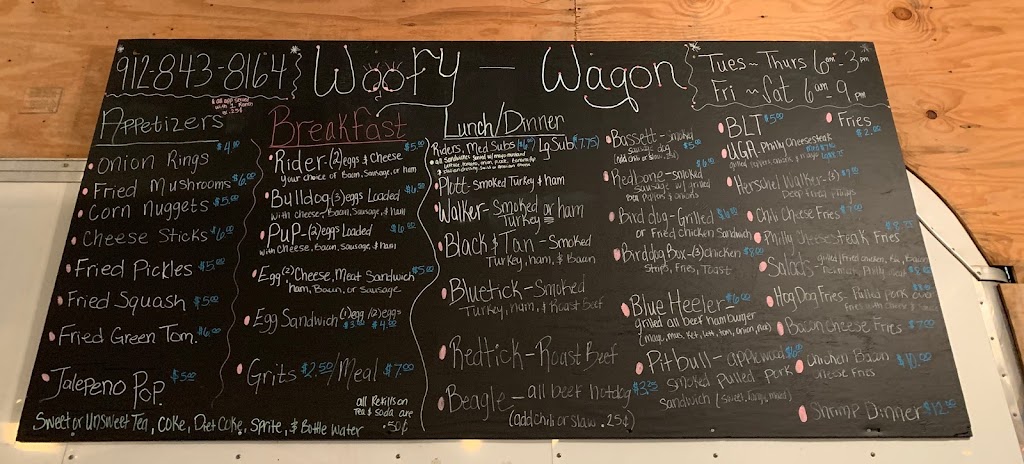 912-843-8164
Woofy - Wagon
Tues ~ Thurs 6am - 3pm
Fri ~ Sat 6am 9pm
Appetizers
Onion Rings $4.00
Fried Mushrooms $6.00
Corn Nuggets $5.00
Cheese Sticks $6.00
Fried Pickles $5.00
Fried Squash $5.00
Fried Green Tom. $6.00
Jalepeno Pop. $5.00
Sweet or Unsweet Tea, Coke, Diet Coke, Sprite, & Bottle Water
Breakfast
Rider-(2) eggs & Cheese $5.00
your choice of Bacon, Sausage, or ham
Bulldog-(3) eggs Loaded $6.00
with cheese, Bacon, Sausage, & ham
Pup-(2) eggs Loaded
with Cheese, Bacon, Sausage, & ham
Egg(2) Cheese, Meat Sandwich $5.00
ham, Bacon, or Sausage
Egg Sandwich (1) egg (2) eggs
Grits $2.50/Meal $7.00
all Refills on
Tea & Soda are
.50¢
Lunch/Dinner
Riders, Med Subs Lg Sub $7.75
Plott-Smoked Turkey & ham
Walker-Smoked or ham
Turkey
Black & Tan-Smoked
Turkey, ham, & Bacon
Bluetick-Smoked
Turkey, ham, & Roast Beef
Redtick-Roast Beef
Beagle-all beef hotdog $3.25
(add chili or slaw .25¢)
Bassett-Smoked
Sausage dog $5.00
(add chili or slaw .25¢)
Redbone-Smoked
Sausage w/ grilled
Peppers & onions
Bird dog-Grilled
or Fried chicken Sandwich
Birddog Box-(3) chicken $8.00
Strips, Fries, Toast
Blue Heeler- $6.00
grilled all beef Hamburger
Pitbull-applewood $6.00
Smoked Pulled Pork
Sandwich
BLT $5.00
Fries
$2.00
UGA Philly Cheesesteak
Herschel Walker-
Chili Cheese Fries $7.00
Philly Cheesesteak Fries
Salads-
Hog Dog Fries-Pulled pork over
Bacon Cheese Fries $7.00
Chicken Bacon $10.00
Cheese Fries
Shrimp Dinner